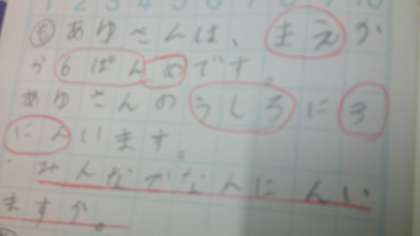 ⑥ あゆさんは、まえか
ら6ばんめです。
あゆさんのうしろに3
にんいます。
みんなでなんにんい
ますか。